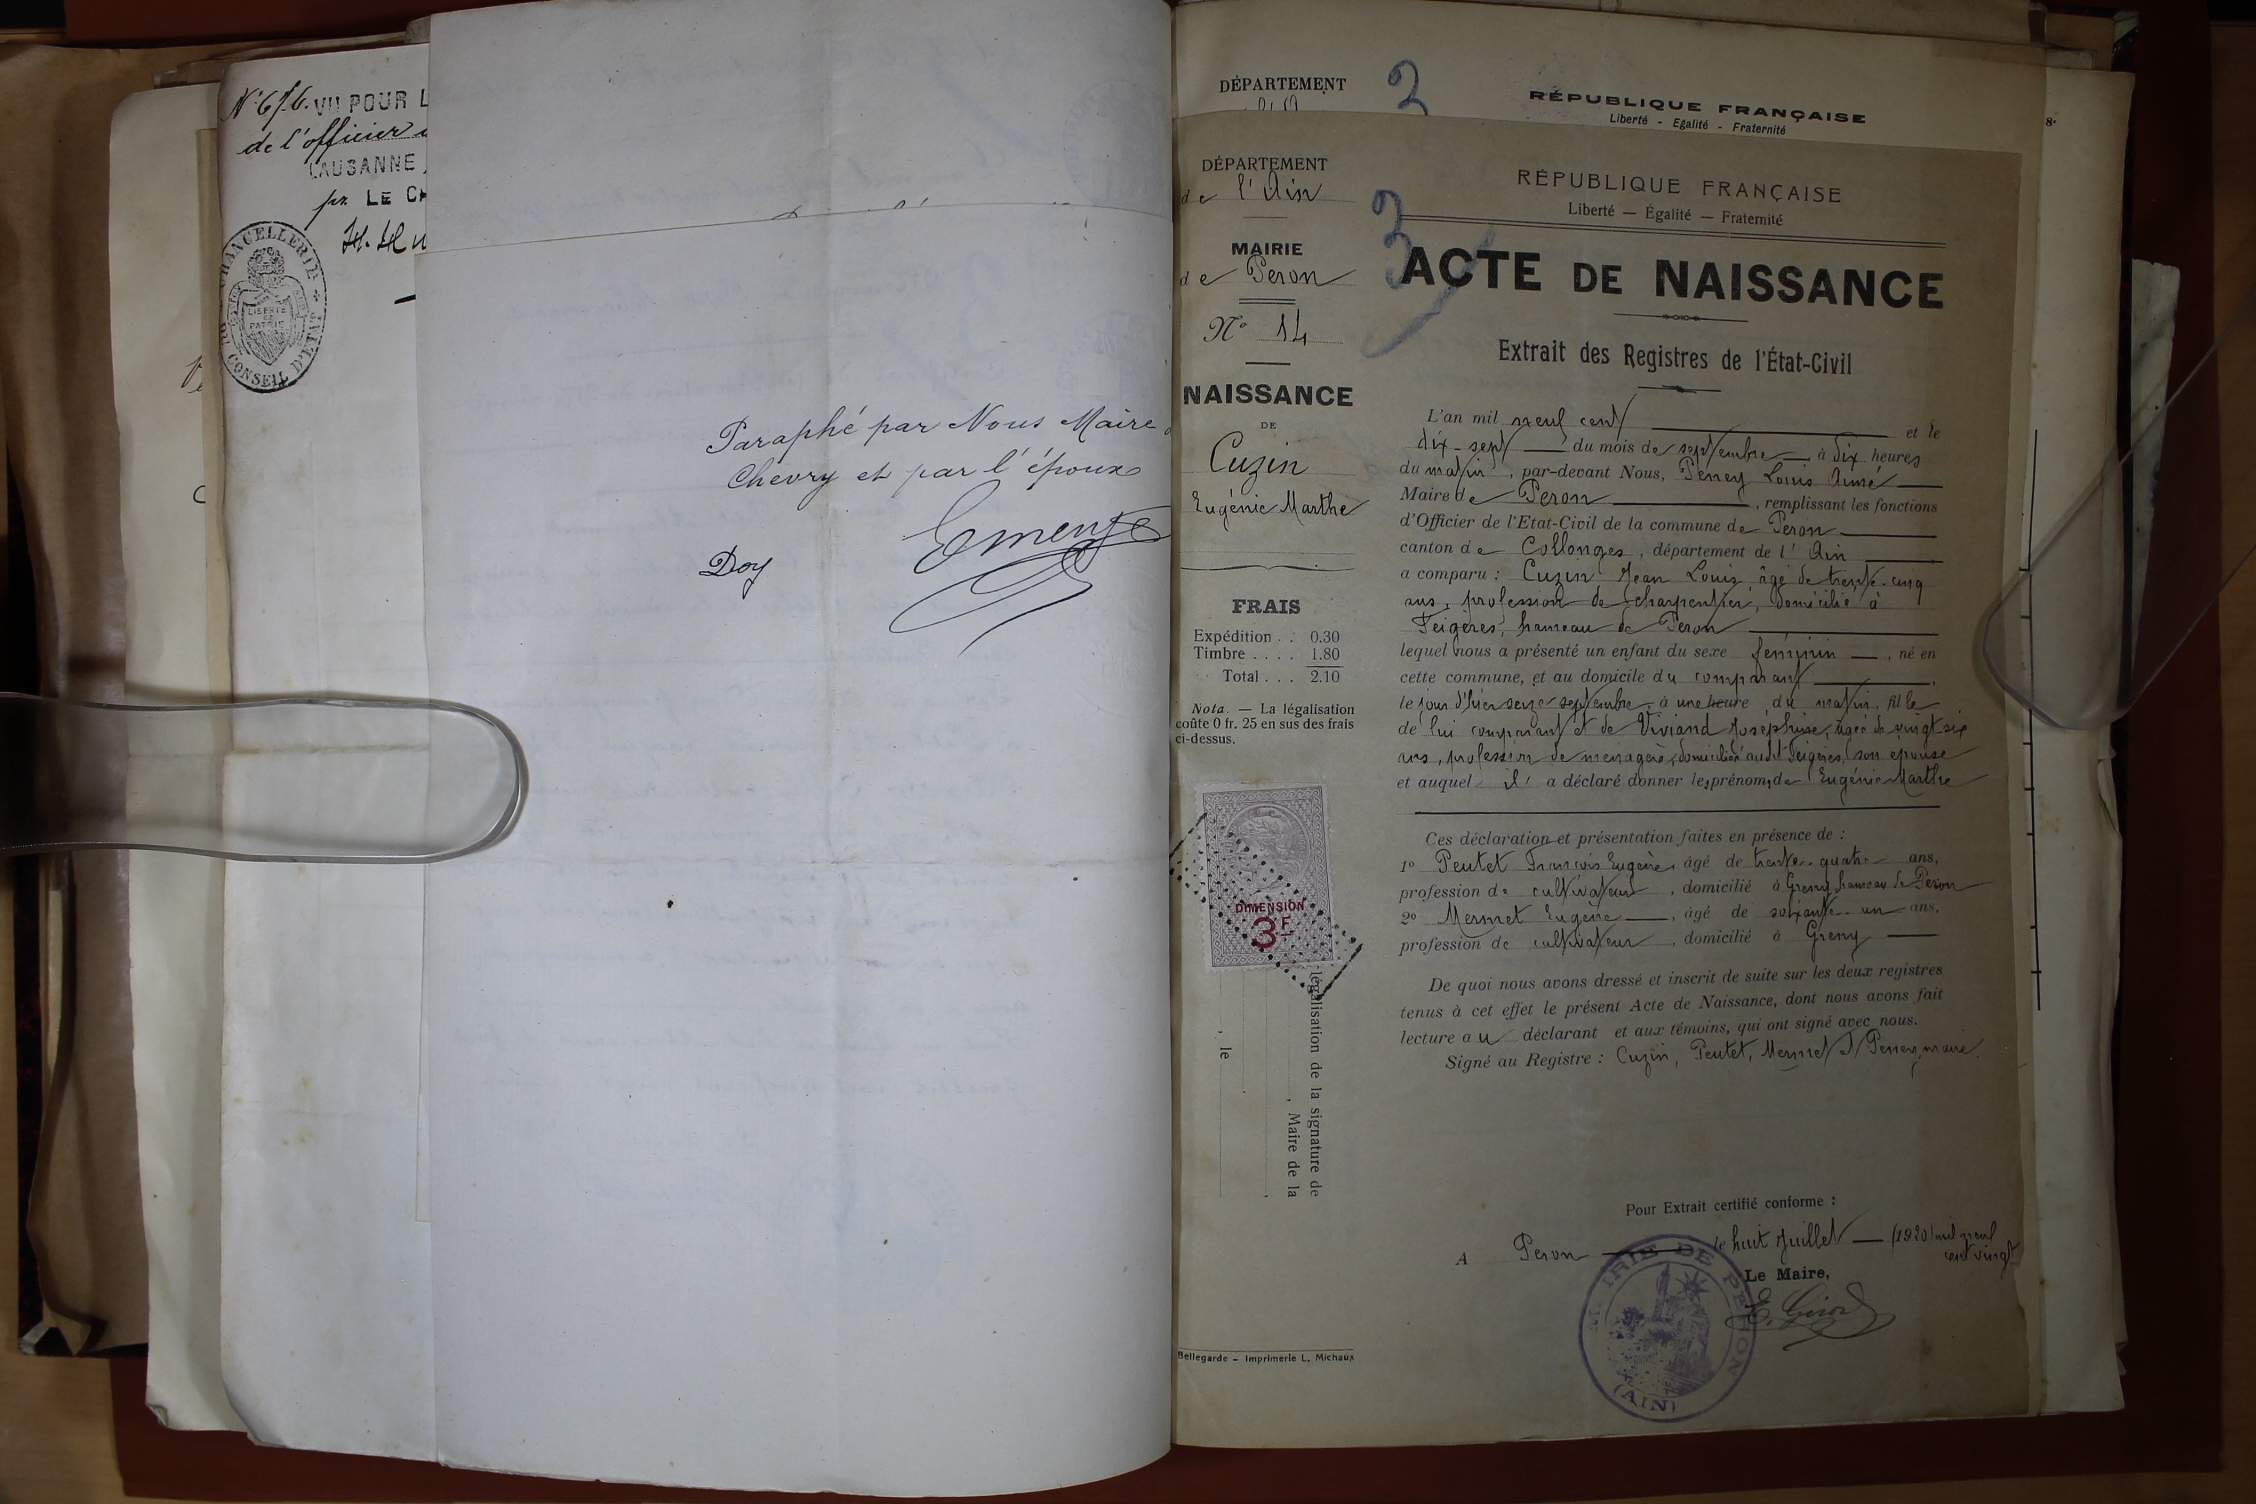 N° 676. VU POUR L
de l'officier
LAUSANNE
pr. LE CH
CHANCELLERIE
LIBERTÉ
ET
PATRIE
DU CONSEIL D'ETAT
Paraphé par Nous Maire
Chevry et par l'époux
Doy
DÉPARTEMENT
3
RÉPUBLIQUE FRANÇAISE
Liberté - Egalité - Fraternité
8·
DÉPARTEMENT
de l'Ain
MAIRIE
de Peron
N° 14
NAISSANCE
DE
Cuzin
Eugénie Marthe
FRAIS
Expédition . . 0.30
Timbre . . . . 1.80
Total . . . 2.10
Nota. — La légalisation
coûte 0 fr. 25 en sus des frais
ci-dessus.
DIMENSION
3F
légalisation de la signature de
, Maire de la
, le
Bellegarde – Imprimerie L. Michaux
3
RÉPUBLIQUE FRANÇAISE
Liberté — Égalité — Fraternité
ACTE DE NAISSANCE
Extrait des Registres de l'État-Civil
L'an mil neuf cent et le
dix-sept du mois de septembre à dix heures
du matin, par-devant Nous, Perrey Louis Aimé
Maire de Peron, remplissant les fonctions
d'Officier de l'Etat-Civil de la commune de Peron
canton de Collonges, département de l'Ain
a comparu : Cuzin Jean Louis, âgé de trente-cinq
ans, profession de charpentier, domicilié à
Feigères, hameau de Peron
lequel nous a présenté un enfant du sexe féminin, né en
cette commune, et au domicile du comparant,
le jour d'hier seize septembre à une heure du matin, fille
de lui comparant et de Viviand Josephine, âgée de vingt six
ans, profession de ménagère, domiciliée audit Feigères, son épouse
et auquel il a déclaré donner les prénoms de Eugénie Marthe
Ces déclaration et présentation faites en présence de :
1° Peutet François Eugène, âgé de trente-quatre ans,
profession de cultivateur, domicilié à Greny hameau de Peron
2° Mermet Eugène, âgé de soixante-un ans,
profession de cultivateur, domicilié à Greny
De quoi nous avons dressé et inscrit de suite sur les deux registres
tenus à cet effet le présent Acte de Naissance, dont nous avons fait
lecture au déclarant et aux témoins, qui ont signé avec nous.
Signé au Registre : Cuzin, Peutet, Mermet et Perrey, maire.
Pour Extrait certifié conforme :
A Peron le huit Juillet (1920) mil neuf
cent vingt
Le Maire,
E. Girod
MAIRIE DE PERON
(AIN)